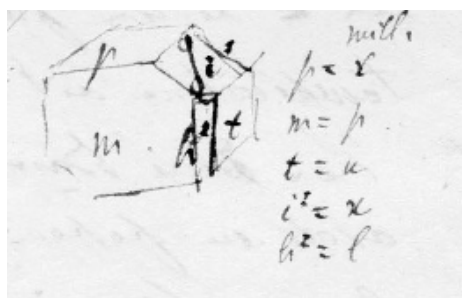 p
i²
s
h²
t
m
mill.
p = r
m = p
t = u
i² = x
h² = l